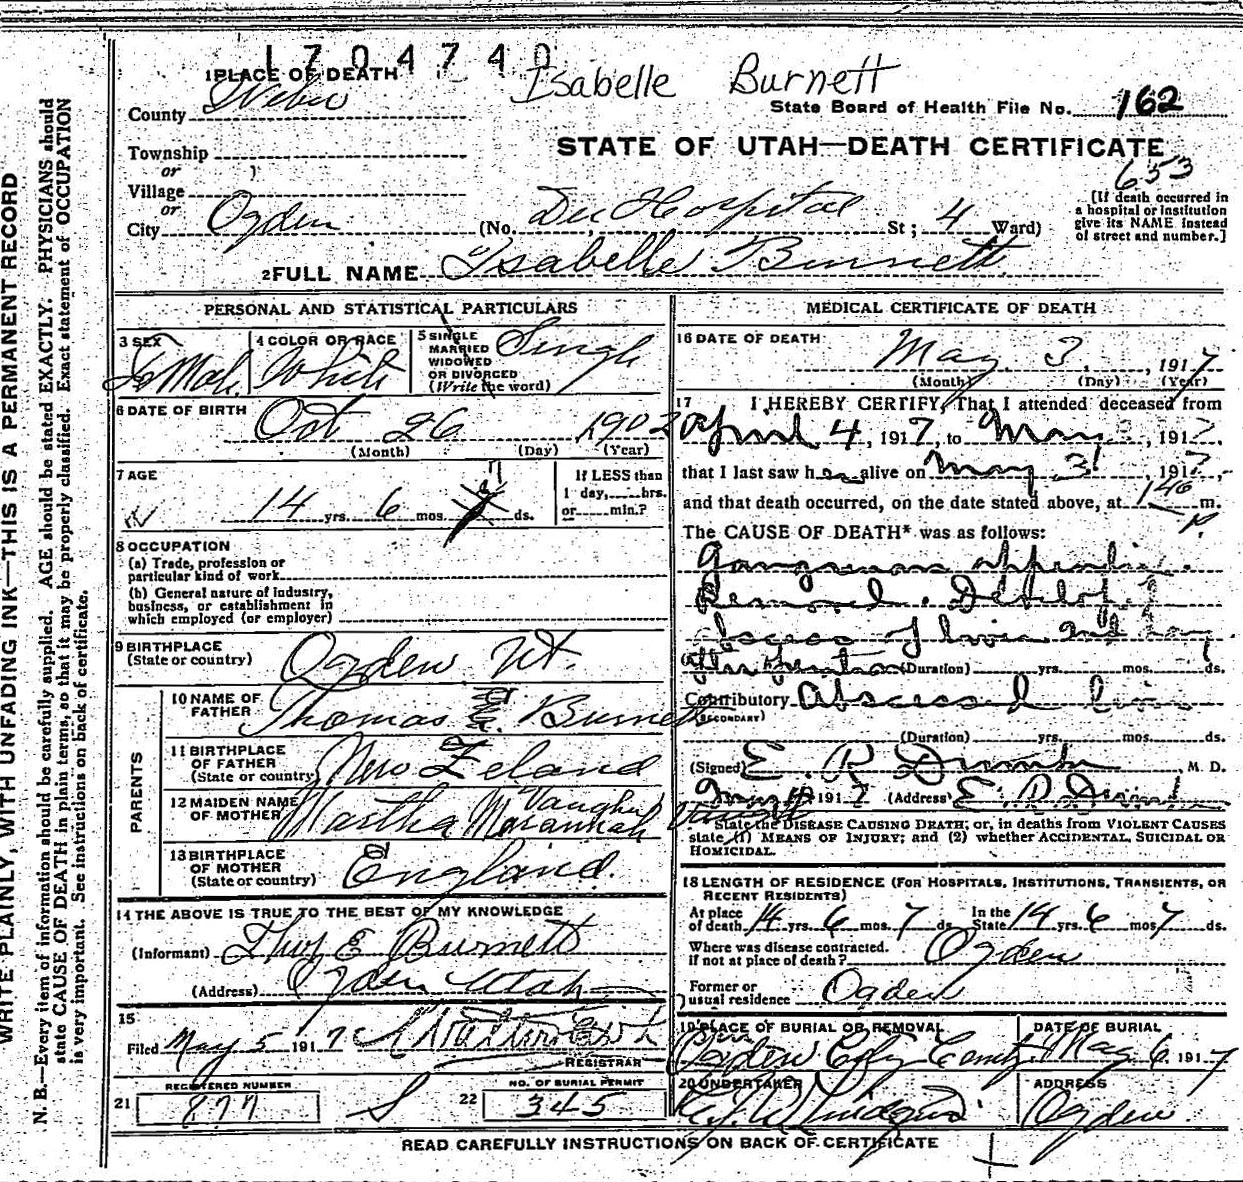 1704740
Isabelle Burnett
1 PLACE OF DEATH
County Weber
State Board of Health File No. 162
Township
or
STATE OF UTAH—DEATH CERTIFICATE
653
Village
or
City Ogden
(No. Dee Hospital St; 4 Ward)
[If death occurred in
a hospital or institution
give its NAME instead
of street and number.]
2 FULL NAME Isabelle Burnett
PERSONAL AND STATISTICAL PARTICULARS
3 SEX
FeMale
4 COLOR OR RACE
White
5 SINGLE
MARRIED
WIDOWED
OR DIVORCED
(Write the word)
Single
6 DATE OF BIRTH
Oct 26 1902
(Month) (Day) (Year)
7 AGE
14 yrs. 6 mos. 7 ds.
If LESS than
1 day, hrs.
or min.?
8 OCCUPATION
(a) Trade, profession or
particular kind of work
(b) General nature of industry,
business, or establishment in
which employed (or employer)
9 BIRTHPLACE
(State or country)
Ogden Ut.
PARENTS
10 NAME OF
FATHER
Thomas E. Burnett
11 BIRTHPLACE
OF FATHER
(State or country)
New Zeland
12 MAIDEN NAME
OF MOTHER
Martha
13 BIRTHPLACE
OF MOTHER
(State or country)
England.
14 THE ABOVE IS TRUE TO THE BEST OF MY KNOWLEDGE
(Informant) Thos E Burnett
(Address) Ogden Utah
15
Filed May 5 1917
REGISTRAR
REGISTERED NUMBER
21 877
NO. OF BURIAL PERMIT
22 345
MEDICAL CERTIFICATE OF DEATH
16 DATE OF DEATH
May 3, 1917
(Month) (Day) (Year)
17 I HEREBY CERTIFY, That I attended deceased from
April 4, 1917, to May 3, 1917,
that I last saw her alive on May 3, 1917,
and that death occurred, on the date stated above, at 140 P m.
The CAUSE OF DEATH* was as follows:
Gangrenous appendix.
Removed. Developed
abscess of liver and lung
after operation (Duration) yrs. mos. ds.
Contributory Abscessed liver
(SECONDARY)
(Duration) yrs. mos. ds.
(Signed) E. R. Dumke M. D.
May 1917 (Address) E. R. Dumke
State the DISEASE CAUSING DEATH; or, in deaths from VIOLENT CAUSES
state (1) MEANS OF INJURY; and (2) whether ACCIDENTAL, SUICIDAL OR
HOMICIDAL.
18 LENGTH OF RESIDENCE (FOR HOSPITALS, INSTITUTIONS, TRANSIENTS, OR
RECENT RESIDENTS)
At place
of death 14 yrs. 6 mos. 7 ds. In the
State 14 yrs. 6 mos. 7 ds.
Where was disease contracted,
if not at place of death? Ogden
Former or
usual residence Ogden
19 PLACE OF BURIAL OR REMOVAL
Ogden City Cemty.
DATE OF BURIAL
May 6, 1917
20 UNDERTAKER
ADDRESS
Ogden.
READ CAREFULLY INSTRUCTIONS ON BACK OF CERTIFICATE
WRITE PLAINLY, WITH UNFADING INK—THIS IS A PERMANENT RECORD
N. B.—Every item of information should be carefully supplied. AGE should be stated EXACTLY. PHYSICIANS should
state CAUSE OF DEATH in plain terms, so that it may be properly classified. Exact statement of OCCUPATION
is very important. See instructions on back of certificate.